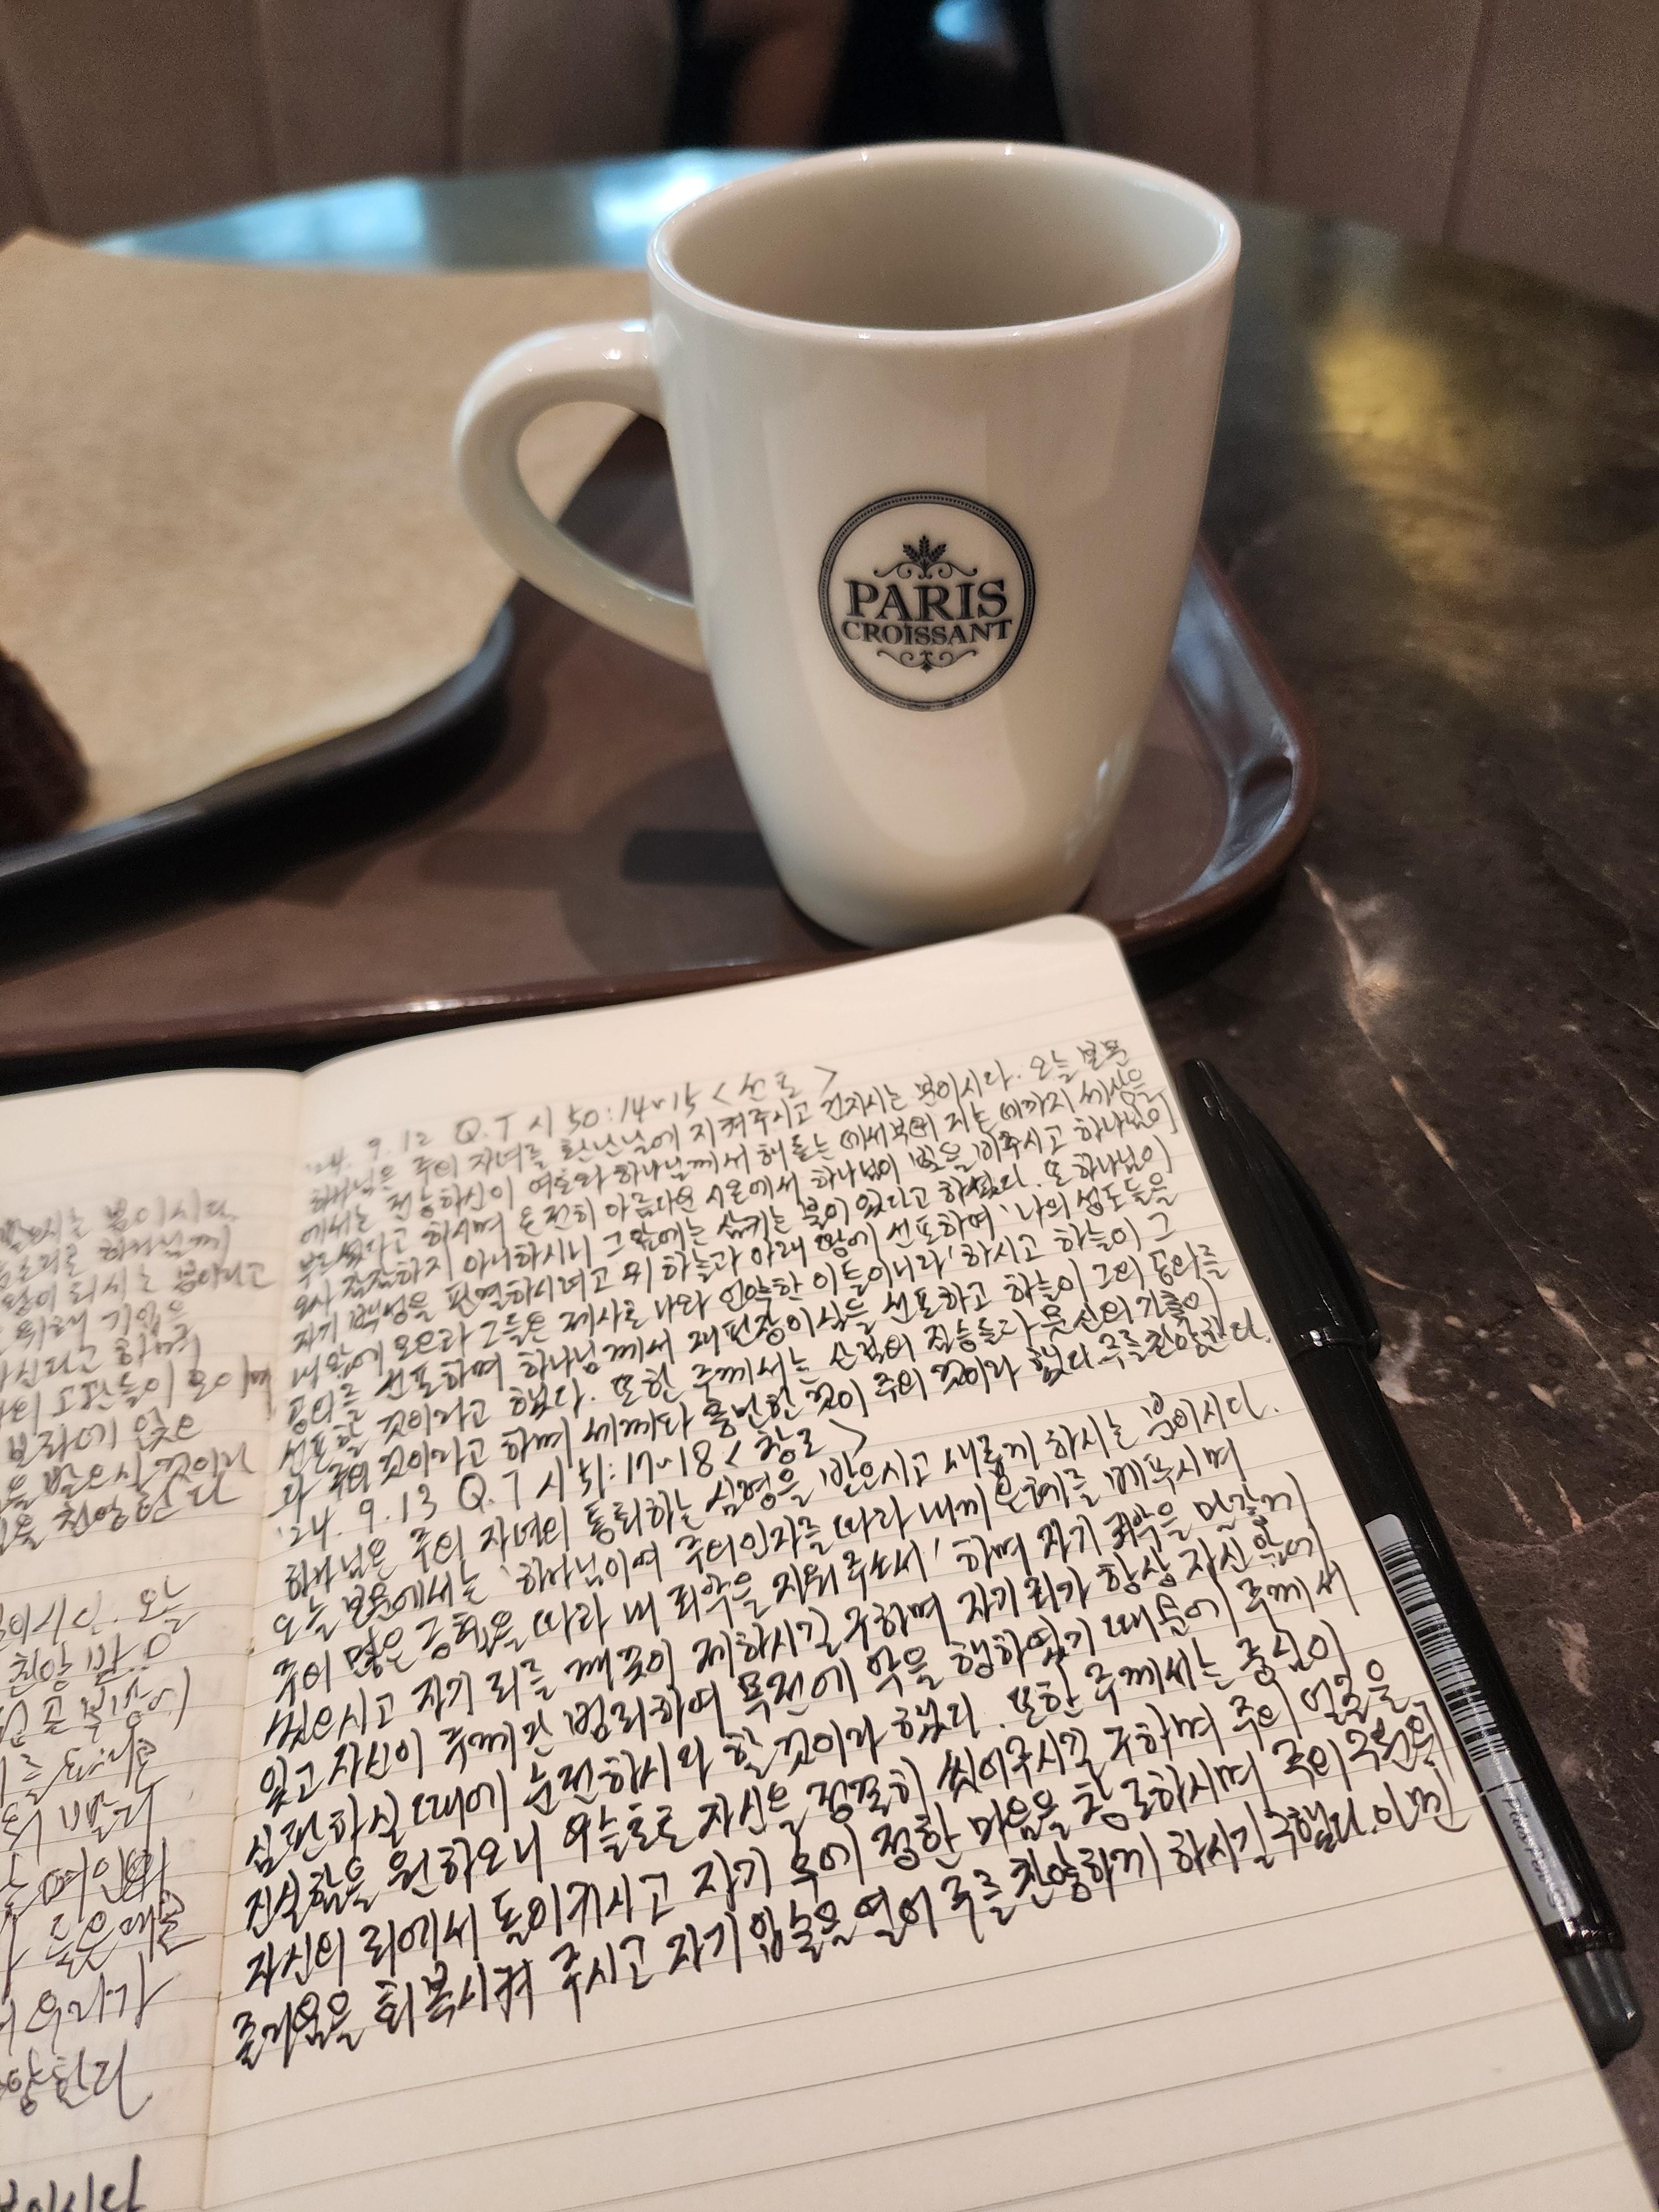 PARIS
CROISSANT
'24. 9.12 Q.T 시 50:14~15 <선포>
하나님은 주의 자녀를 환난날에 지켜주시고 건지시는 분이시다. 오늘 본문
에서는 전능하신이 여호와 하나님께서 해 돋는 데서부터 지는 데까지 세상을
부르셨다고 하시며 온전히 아름다운 시온에서 하나님이 빛을 비추시고 하나님이
오사 잠잠하지 아니하시니 그 앞에는 삼키는 불이 있다고 하셨다. 또 하나님이
자기 백성을 판결하시려고 위 하늘과 아래 땅에 선포하여 '나의 성도들을
내 앞에 모으라 그들은 제사로 나와 언약한 이들이니라' 하시고 하늘이 그
공의를 선포하며 하나님께서 재판장이심을 선포하고 하늘이 그의 공의를
선포할 것이라고 했다. 또한 주께서는 산적의 짐승들과 뭇 산의 가축이
다 주의 것이라고 하며 세계와 충만한 것이 주의 것이라 했다. 주를 찬양한다.
'24. 9.13 Q.T 시 51:17~18 <창조>
하나님은 주의 자녀의 통회하는 심령을 받으시고 새롭게 하시는 분이시다.
오늘 본문에서는 '하나님이여 주의 인자를 따라 내게 은혜를 베푸시며
주의 많은 긍휼을 따라 내 죄악을 지워 주소서' 하며 자기 죄악을 말갛게
씻으시고 자기 죄를 깨끗이 제하시길 구하며 자기 죄가 항상 자신 앞에
있고 자신이 주께만 범죄하여 목전에 악을 행하였기 때문에 주께서
심판하실 때에 순전하시다 할 것이라 했다. 또한 주께서는 중심이
진실함을 원하오니 우슬초로 자신을 정결히 씻어주시길 구하며 주의 얼굴을
자신의 죄에서 돌이키시고 자기 속에 정한 마음을 창조하시며 주의 구원의
즐거움을 회복시켜 주시고 자기 입술을 열어 주를 찬양하게 하시길 구했다. 아멘
분이시다
하나님께
기업을
보라
찬양한다
오늘
찬양
여인의
우리가
분이시다
Plus Pen S